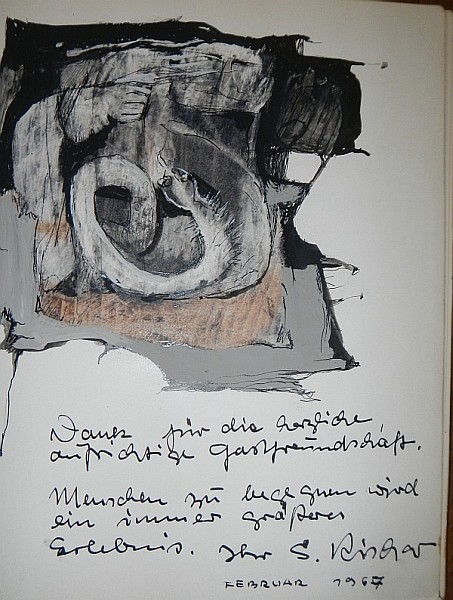 Dank für die herzliche
aufrichtige Gastfreundschaft.
Menschen zu begegnen wird
ein immer größeres
Erlebnis. Ihr S. Rischar
FEBRUAR 1967